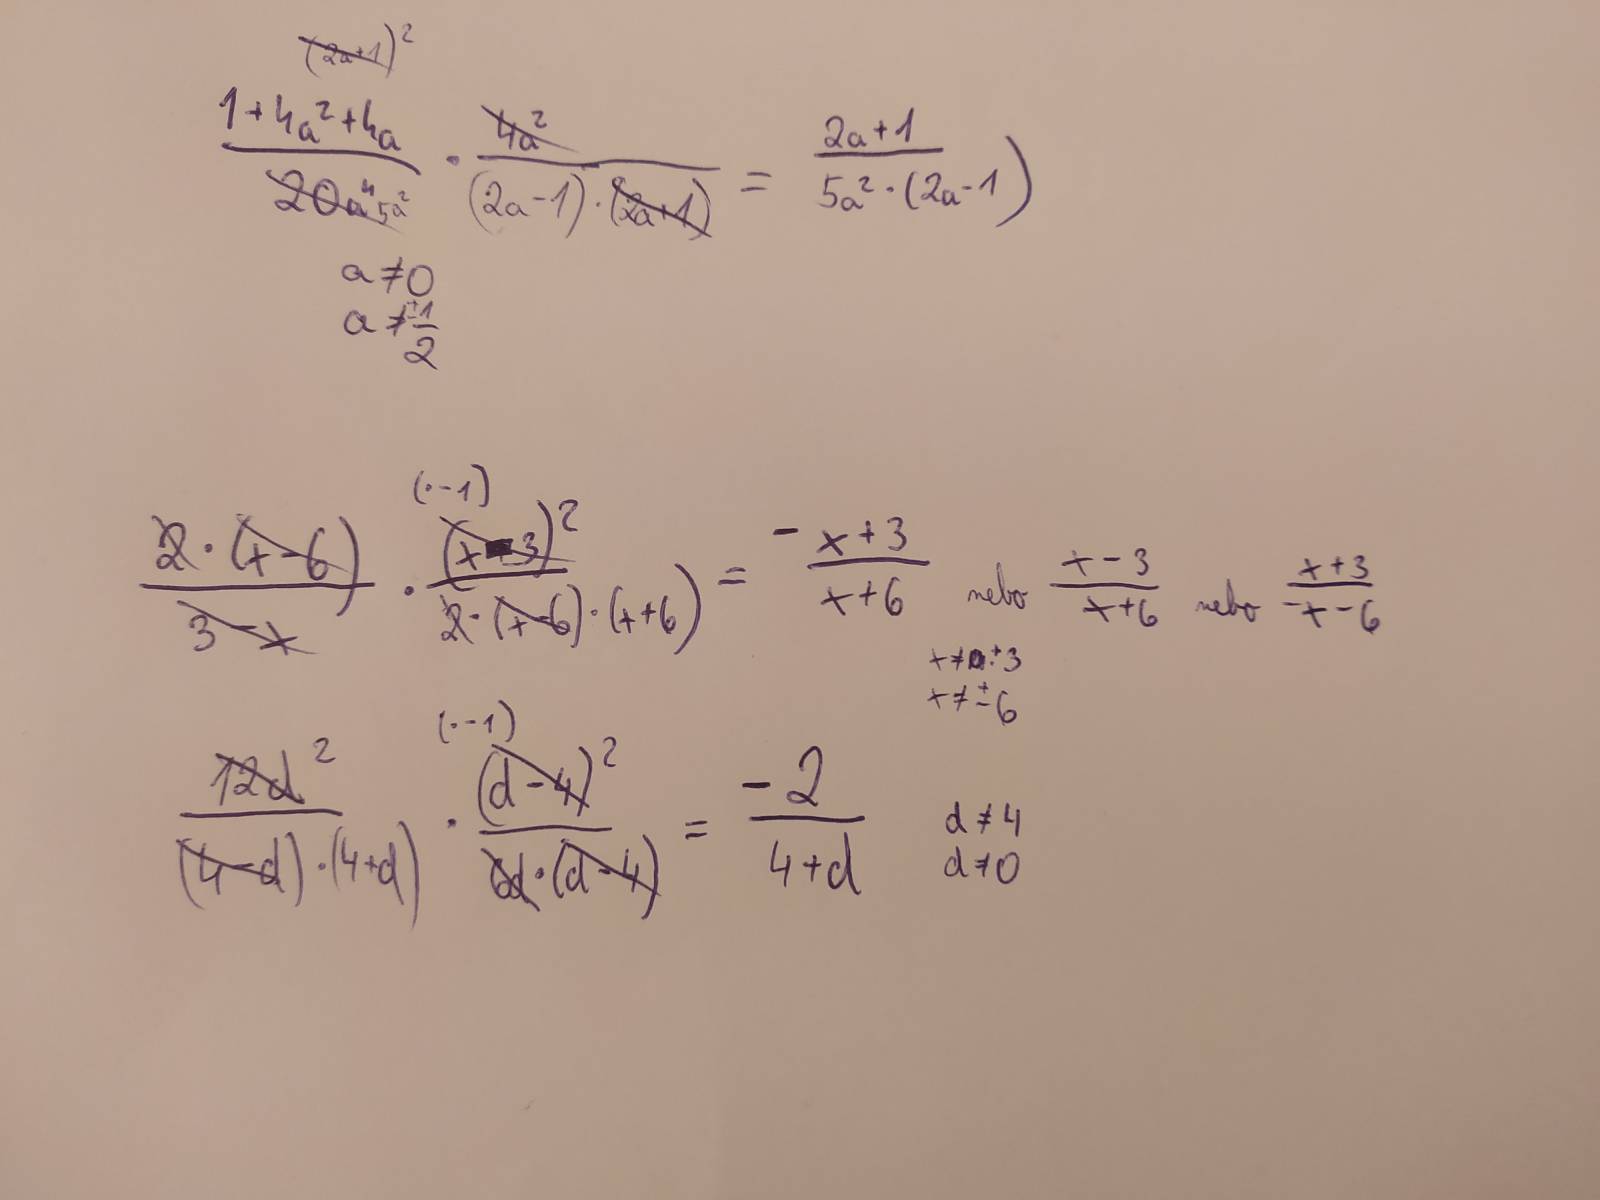 (2a+1)²
1+4a²+4a / 20a⁴ 5a² · 4a² / (2a-1)·(2a+1) = 2a+1 / 5a²·(2a-1)
a≠0
a≠±1/2
(·-1)
2·(x-6) / 3-x · (x-3)² / 2·(x-6)·(x+6) = - x+3 / x+6 nebo x-3 / x+6 nebo x+3 / -x-6
x≠±3
x≠±6
(·-1)
12d² / (4-d)·(4+d) · (d-4)² / 6d·(d-4) = -2 / 4+d
d≠4
d≠0